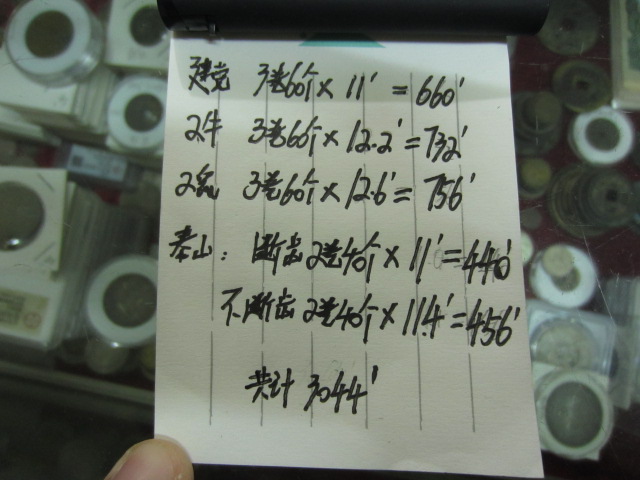 建党 3卷60个×11'=660'
2牛 3卷60个×12.2'=732'
2兔 3卷60个×12.6'=756'
泰山：断齿2卷40个×11'=440'
不断齿2卷40个×11.4'=456'
共计 3044'